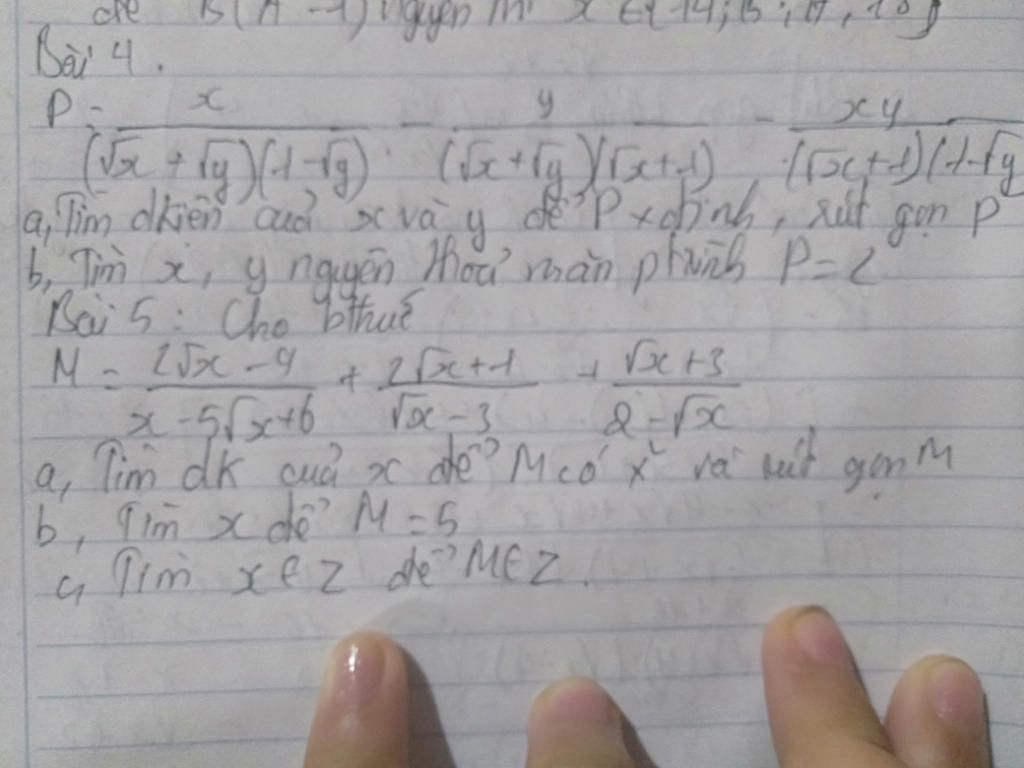 để B(A-1) nguyên thì x ∈
Bài 4.
P = x/((√x + √y)(1-√y)) - y/((√x+√y)(√x+1)) - xy/((√x+1)(1-√y
a, Tìm đkiên của x và y để P xđịnh, rút gọn P
b, Tìm x, y nguyên thoả mãn phtrình P=2
Bài 5: Cho bthưć
M = (2√x - 9)/(x - 5√x+6) + (2√x+1)/(√x - 3) + (√x+3)/(2-√x)
a, Tìm đk của x để M có x² và rút gọn M
b, Tìm x để M = 5
c, Tìm x ∈ Z để M ∈ Z.